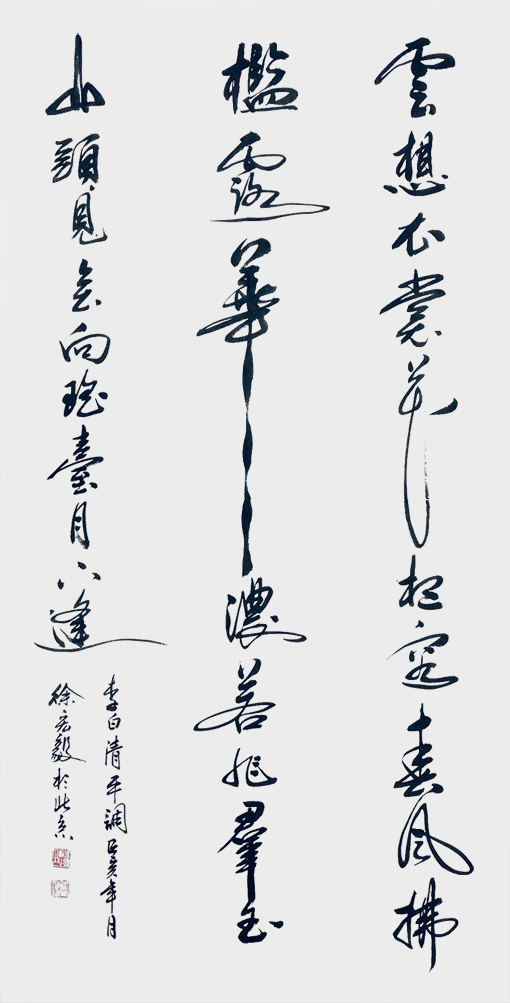 雲想衣裳花想容春风拂
檻露華濃若非羣玉
山頭見会向瑶臺月下逢
李白清平調己亥年月
徐宏毅於北京